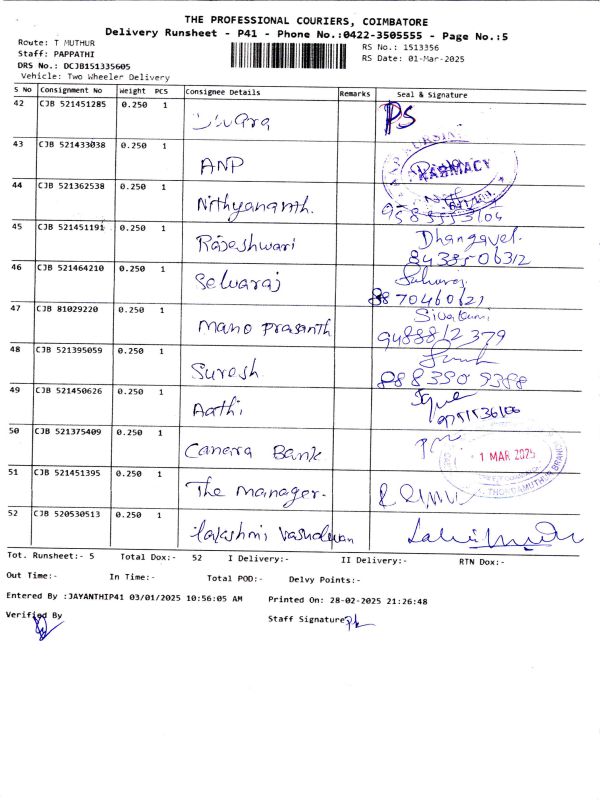 THE PROFESSIONAL COURIERS, COIMBATORE
Delivery Runsheet - P41 - Phone No.:0422-3505555 - Page No.:5
Route: T MUTHUR
Staff: PAPPATHI
DRS No.: DCJB151335605
Vehicle: Two Wheeler Delivery
RS No.: 1513356
RS Date: 01-Mar-2025
S No Consignment No Weight PCS Consignee Details Remarks Seal & Signature
42 CJB 521451285 0.250 1 PS
43 CJB 521433038 0.250 1 ANP PHARMACY
44 CJB 521362538 0.250 1 Nithyananth.
45 CJB 521451191 0.250 1 Rajeshwari Dhangavel.
8438506312
46 CJB 521464210 0.250 1 Selvaraj
8870460621
47 CJB 81029220 0.250 1 Mano Prasanth
9488812379
48 CJB 521395059 0.250 1 Suresh
8883909388
49 CJB 521450626 0.250 1 Aathi
50 CJB 521375409 0.250 1 Canerra Bank 1 MAR 2025
51 CJB 521451395 0.250 1 The manager.
52 CJB 520530513 0.250 1
Tot. Runsheet:- 5 Total Dox:- 52 I Delivery:- II Delivery:- RTN Dox:-
Out Time:- In Time:- Total POD:- Delvy Points:-
Entered By :JAYANTHIP41 03/01/2025 10:56:05 AM Printed On: 28-02-2025 21:26:48
Verified By Staff Signature